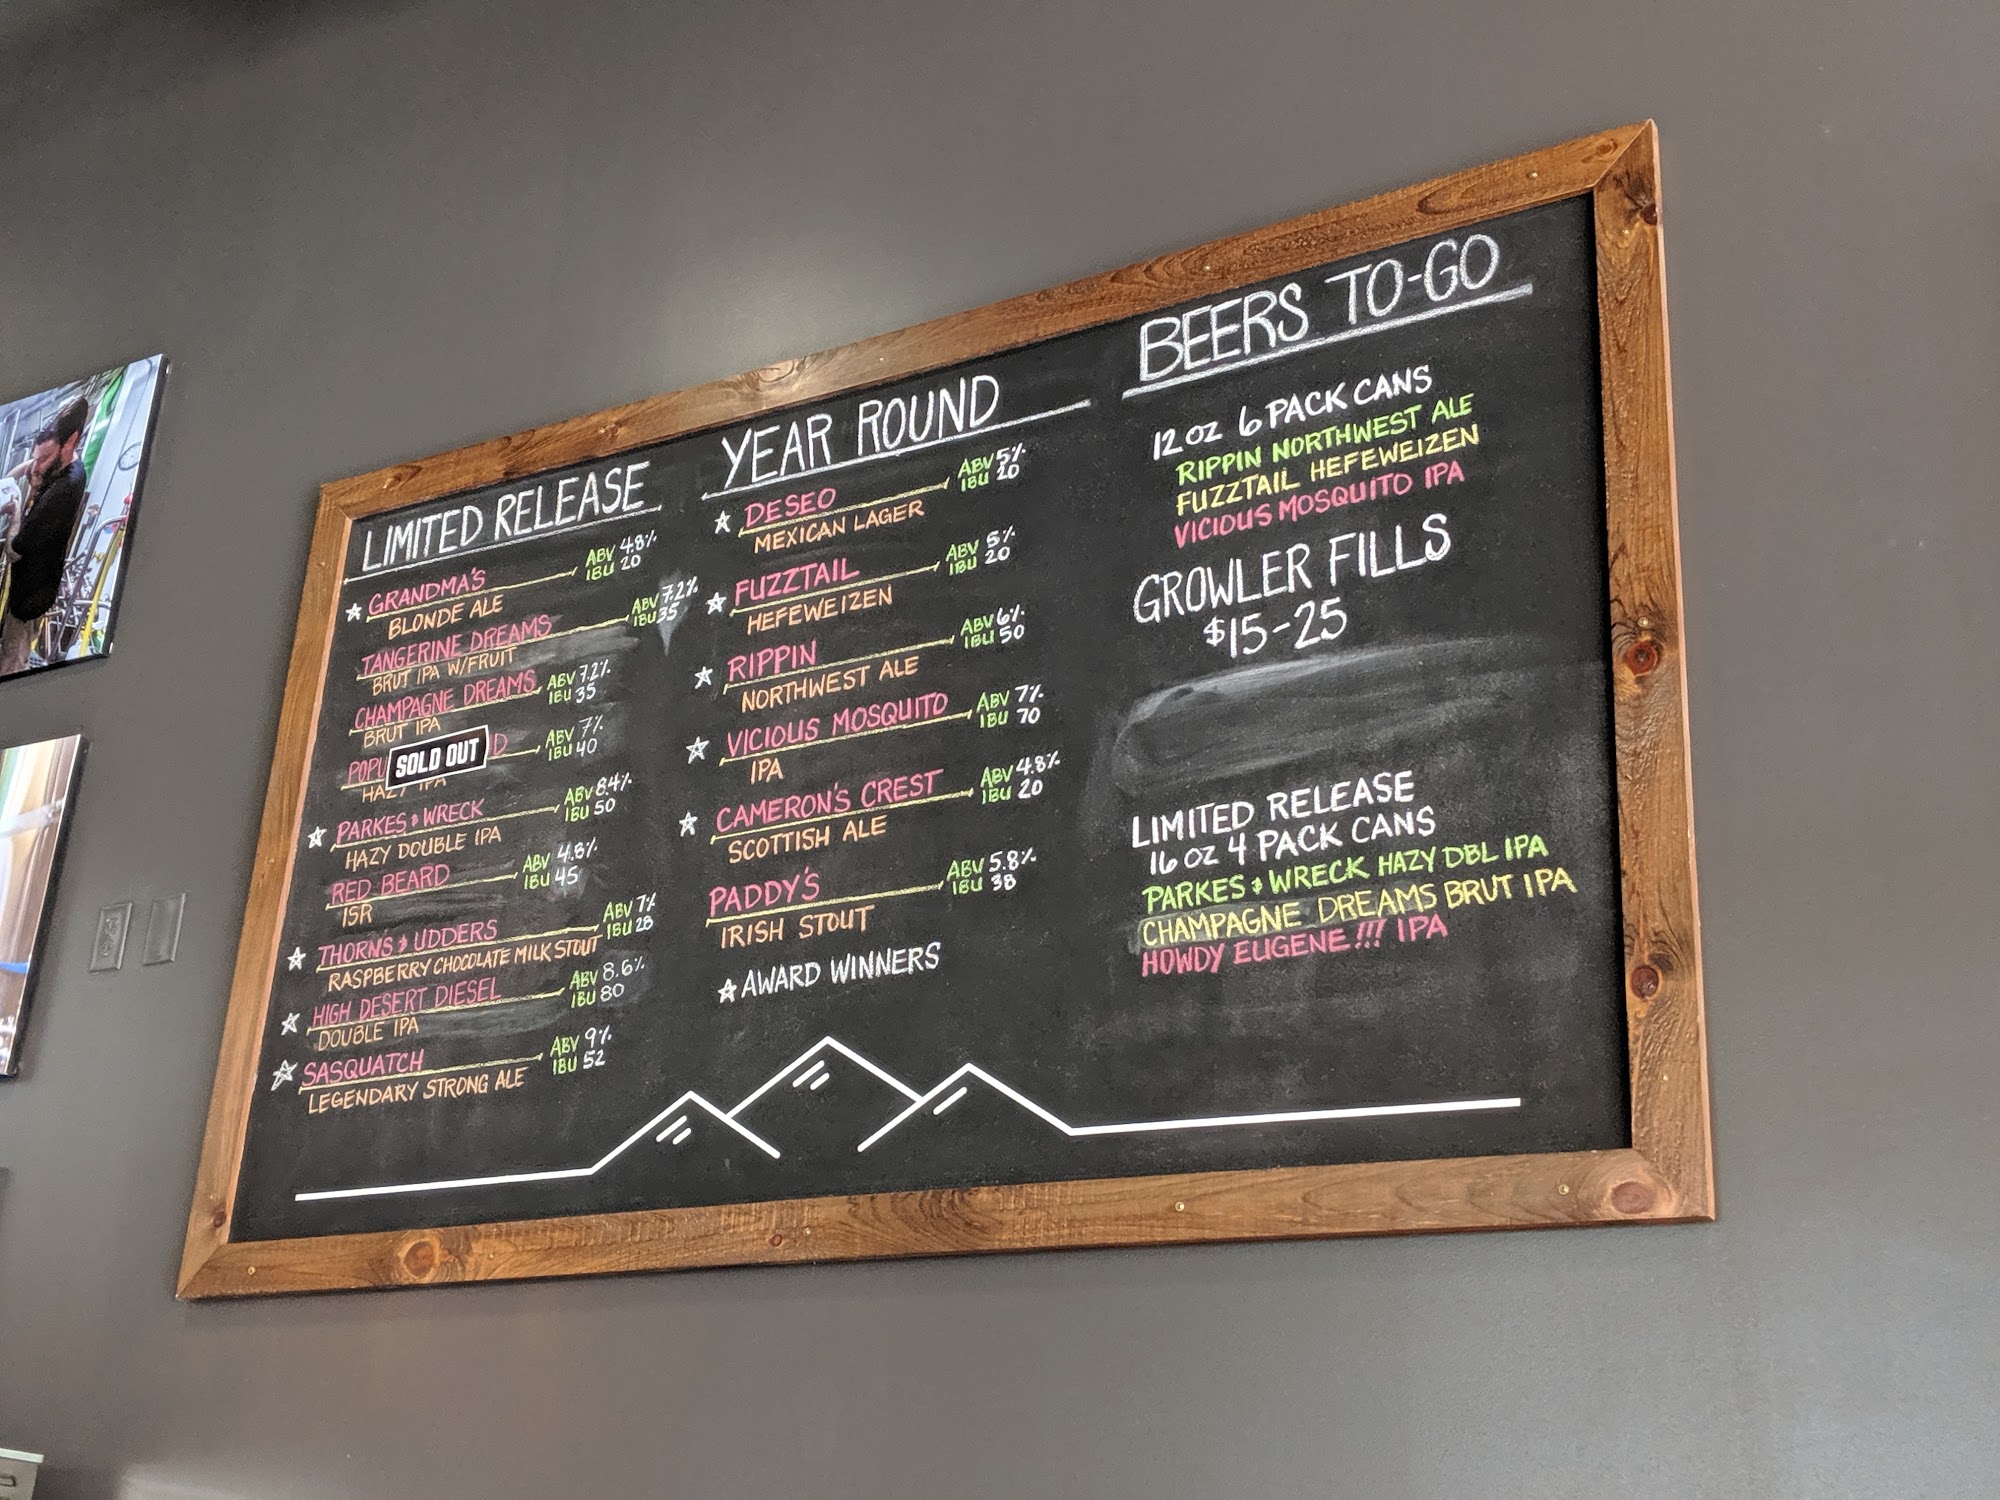 LIMITED RELEASE
GRANDMA'S ABV 4.8%
BLONDE ALE IBU 20
TANGERINE DREAMS ABV 7.2%
BRUT IPA W/FRUIT IBU 35
CHAMPAGNE DREAMS ABV 7.2%
BRUT IPA IBU 35
POPU D ABV 7%
SOLD OUT
HAZY IPA IBU 40
PARKES & WRECK ABV 8.4%
HAZY DOUBLE IPA IBU 50
RED BEARD ABV 4.8%
ISR IBU 45
THORNS & UDDERS ABV 7%
RASPBERRY CHOCOLATE MILK STOUT IBU 28
HIGH DESERT DIESEL ABV 8.6%
DOUBLE IPA IBU 80
SASQUATCH ABV 9%
LEGENDARY STRONG ALE IBU 52
YEAR ROUND
DESEO ABV 5%
MEXICAN LAGER IBU 20
FUZZTAIL ABV 5%
HEFEWEIZEN IBU 20
RIPPIN ABV 6%
NORTHWEST ALE IBU 50
VICIOUS MOSQUITO ABV 7%
IPA IBU 70
CAMERON'S CREST ABV 4.8%
SCOTTISH ALE IBU 20
PADDY'S ABV 5.8%
IRISH STOUT IBU 38
AWARD WINNERS
BEERS TO-GO
12 OZ 6 PACK CANS
RIPPIN NORTHWEST ALE
FUZZTAIL HEFEWEIZEN
VICIOUS MOSQUITO IPA
GROWLER FILLS
$15-25
LIMITED RELEASE
16 OZ 4 PACK CANS
PARKES & WRECK HAZY DBL IPA
CHAMPAGNE DREAMS BRUT IPA
HOWDY EUGENE!!! IPA